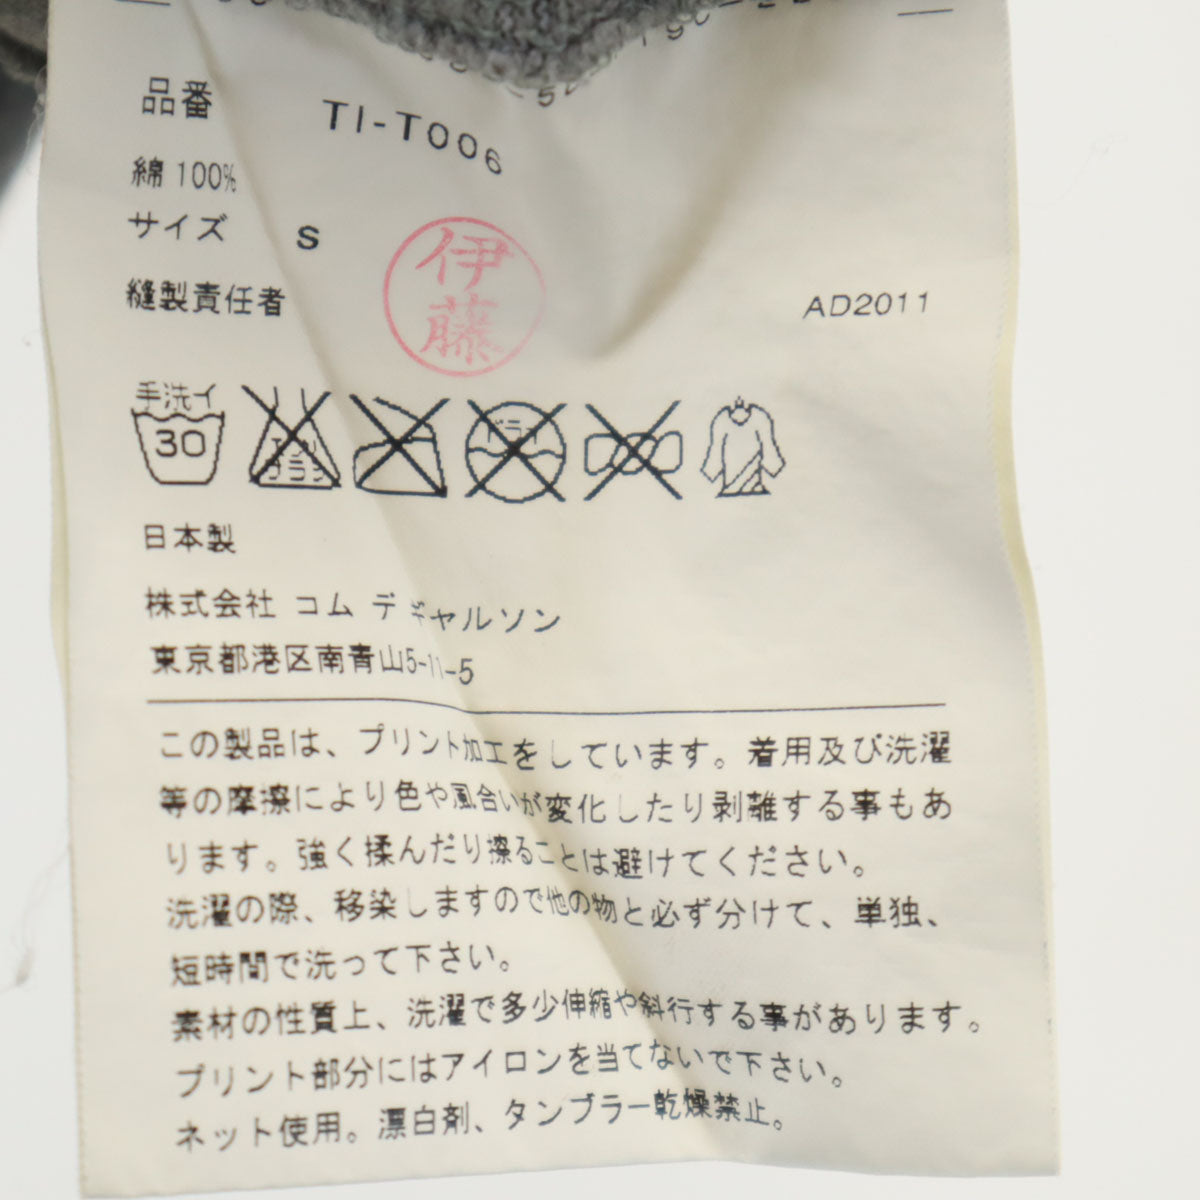 品番 TI-T006
綿 100%
サイズ S
縫製責任者 伊藤 AD2011
手洗イ
30
エンソ
サラシ
ドライ
日本製
株式会社 コム デ ギャルソン
東京都港区南青山5-11-5
この製品は、プリント加工をしています。着用及び洗濯
等の摩擦により色や風合いが変化したり剥離する事もあ
ります。強く揉んだり擦ることは避けてください。
洗濯の際、移染しますので他の物と必ず分けて、単独、
短時間で洗って下さい。
素材の性質上、洗濯で多少伸縮や斜行する事があります。
プリント部分にはアイロンを当てないで下さい。
ネット使用。漂白剤、タンブラー乾燥禁止。